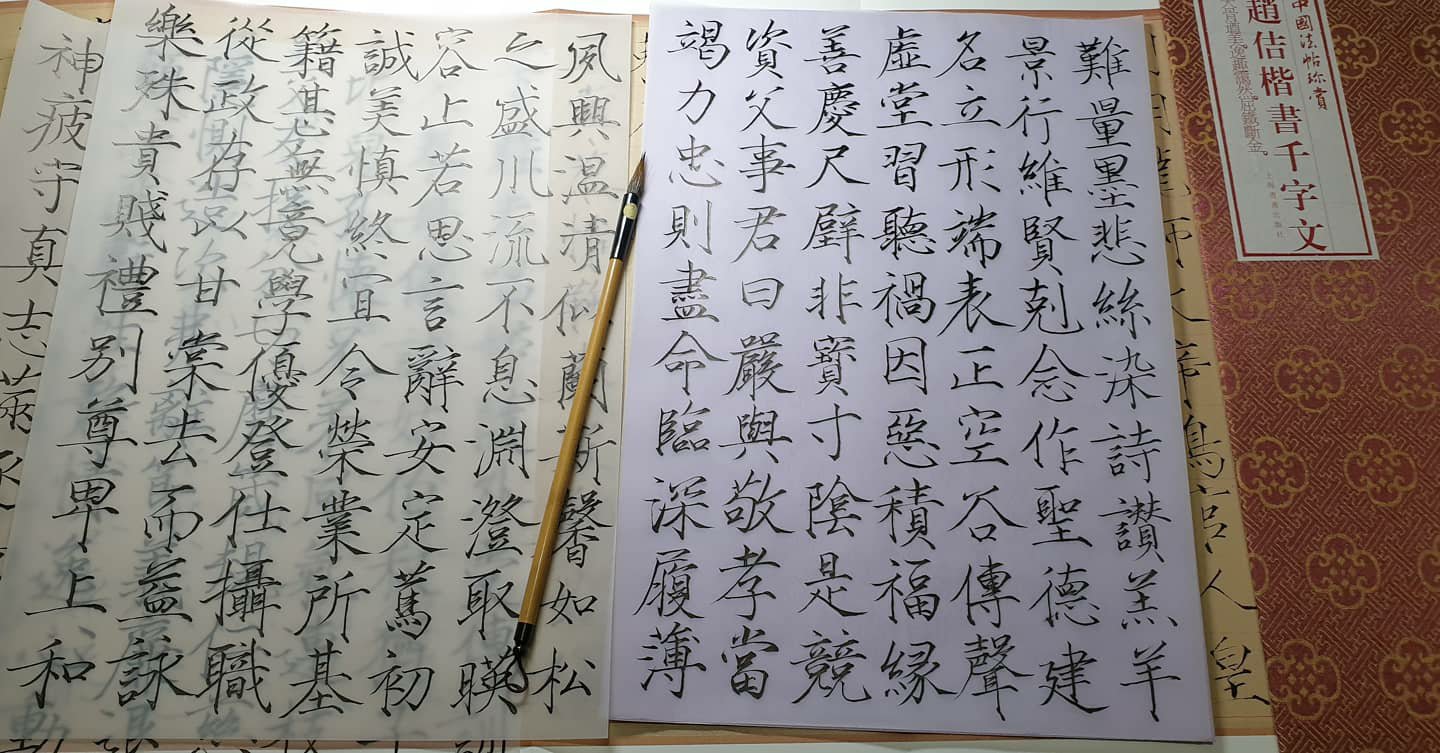 中國法帖珍賞
趙佶楷書千字文
難量墨悲絲染詩讚羔羊
景行維賢剋念作聖德建
名立形端表正空谷傳聲
虛堂習聽禍因惡積福緣
善慶尺璧非寶寸陰是競
資父事君曰嚴與敬孝當
竭力忠則盡命臨深履薄
夙興溫清似蘭斯馨如松
之盛川流不息淵澄取暎
容止若思言辭安定篤初
誠美慎終宜令榮業所基
籍甚無竟學優登仕攝職
從政存以甘棠去而益詠
樂殊貴賤禮別尊卑上和
神疲守真志滿